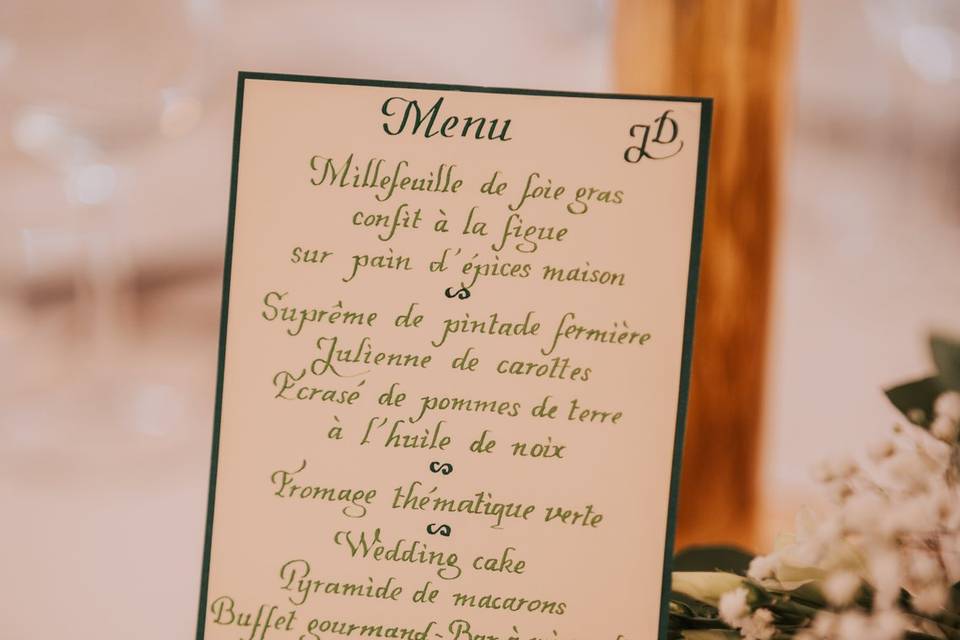 Menu
JD
Millefeuille de foie gras
confit à la figue
sur pain d'épices maison
Suprême de pintade fermière
Julienne de carottes
Ecrasé de pommes de terre
à l'huile de noix
Fromage thématique verte
Wedding cake
Pyramide de macarons
Buffet gourmand-Bar à